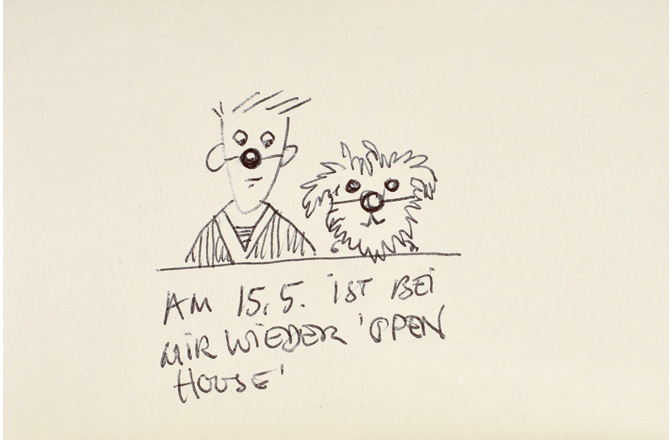 AM 15.5. IST BEI
MIR WIEDER 'OPEN
HOUSE'